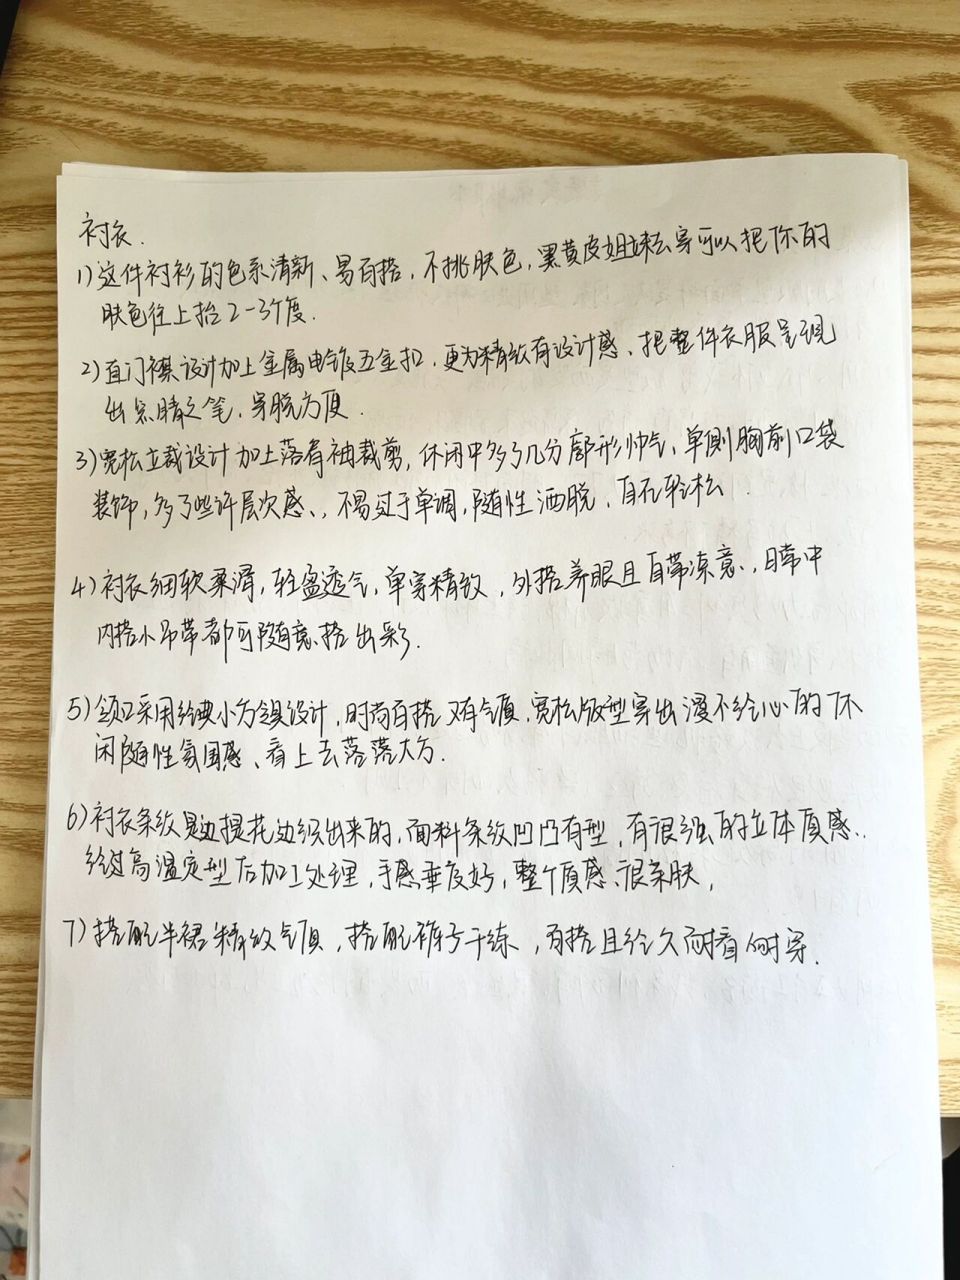 衬衣.
1)这件衬衫的色系清新、易百搭，不挑肤色，黑黄皮姐妹么穿可以把你的
肤色往上抬2-3个度.
2)直门襟设计加上金属电镀五金扣，更为精致有设计感、把整件衣服呈现
出点睛之笔，穿脱方便.
3)宽松立裁设计加上落肩袖裁剪，休闲中多了几分廓形帅气，单侧胸前口袋
装饰，多了些许层次感、，不易过于单调，随性洒脱，自在轻松.
4)衬衣细软柔滑，轻盈透气，单穿精致，外搭养眼且自带凉意，日常中
内搭小吊带都可随意搭出彩.
5)领口采用经典小方领设计，时尚百搭又有气质，宽松版型穿出漫不经心的休
闲随性氛围感、看上去落落大方.
6)衬衣条纹是边提花边织出来的，面料条纹凹凸有型，有很强的立体质感、
经过高温定型后加工处理，手感垂度好，整个质感很亲肤，
7)搭配半裙精致气质，搭配裤子干练，百搭且经久耐看耐穿.